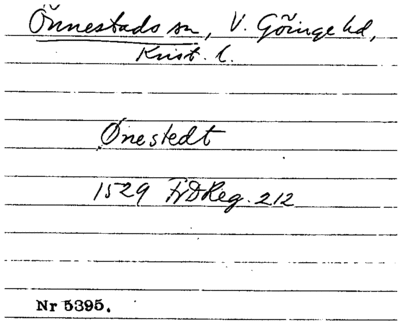 Önnestads sn, V. Göinge hd,
Krist. l.
Ønestedt
1529 FrDReg. 212
Nr 5395.